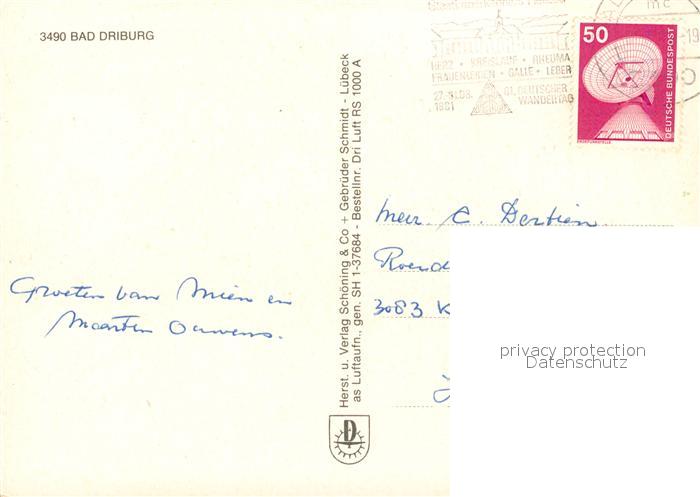 3490 BAD DRIBURG
HERZ • KREISLAUF • RHEUMA
FRAUENLEIDEN • GALLE • LEBER
27.-31.08. 81. DEUTSCHER
1981 WANDERTAG
50
DEUTSCHE BUNDESPOST
ERDEFUNKSTELLE
Groeten van Mien en
Maarten Ouwens.
Herst. u. Verlag Schöning & Co + Gebrüder Schmidt - Lübeck
as Luftaufn., gen. SH 1-37684 - Bestellnr. Dri Luft RS 1000 A
Mevr. C. Dertien
Roend
3083 K
privacy protection
Datenschutz